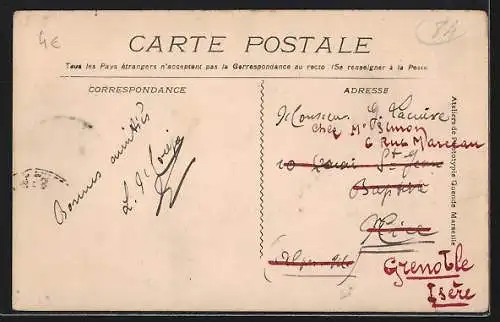 4€
84
CARTE POSTALE
Tous les Pays étrangers n'acceptent pas la Correspondance au recto (Se renseigner à la Poste
CORRESPONDANCE
ADRESSE
Bonnes amitiés
Monsieur G.
chez Mr Simon
6 Rue Marceau
10 Quai St-Jean
Baptiste
Nice
Grenoble
Isère
Ateliers de Phototypie Guende Marseille